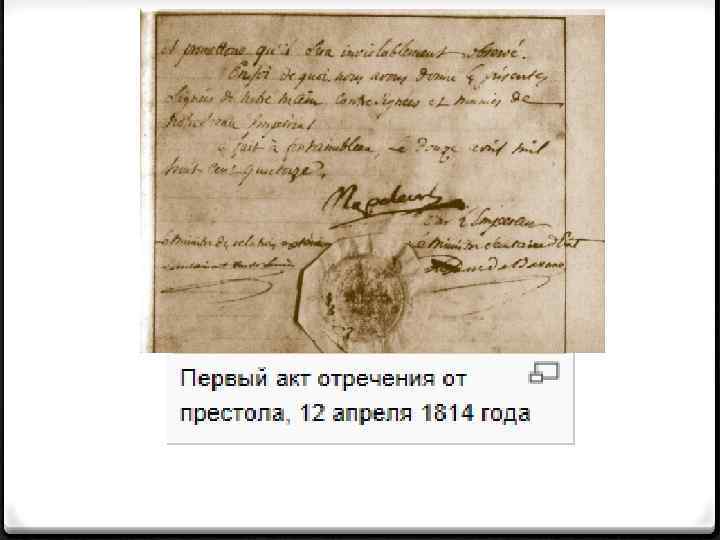 et promettons qu'il sera inviolablement observé.
En foi de quoi nous avons donné les présentes
signées de notre main, contresignées et munies de
notre sceau impérial
fait à fontainebleau, le douze avril mil
huit cent quatorze.
Napoleon
Par l'Empereur
Le Ministre des relations extérieures
Le Ministre Secretaire d'Etat
Le Duc de Bassano
Первый акт отречения от
престола, 12 апреля 1814 года